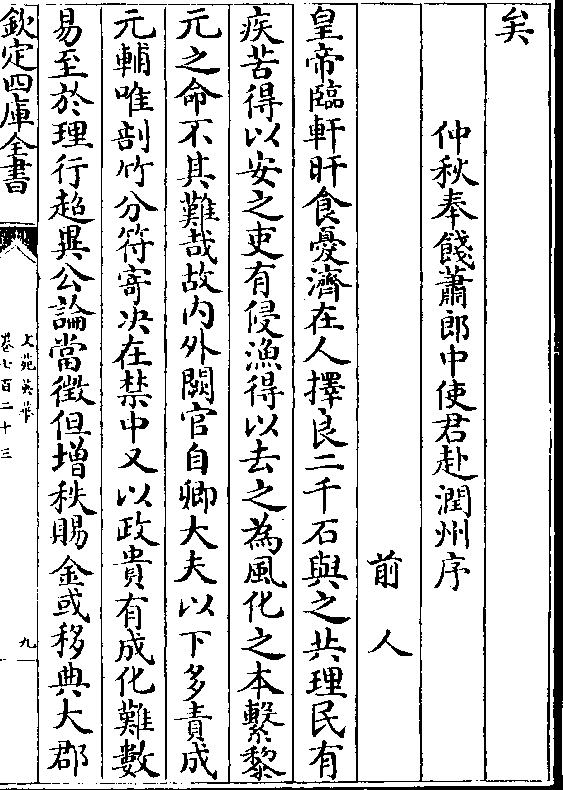 矣
仲秋奉餞蕭郎中使君赴潤州序
前人
皇帝臨軒旰食憂濟在人擇良二千石與之共理民有
疾苦得以安之吏有侵漁得以去之為風化之本繫黎
元之命不其難哉故内外闕官自卿大夫以下多責成
元輔唯剖竹分符寄决在禁中又以政貴有成化難數
易至於理行超異公論當徴但增秩賜金或移典大郡
欽定四庫全書
文苑英華
卷七百二十三
九